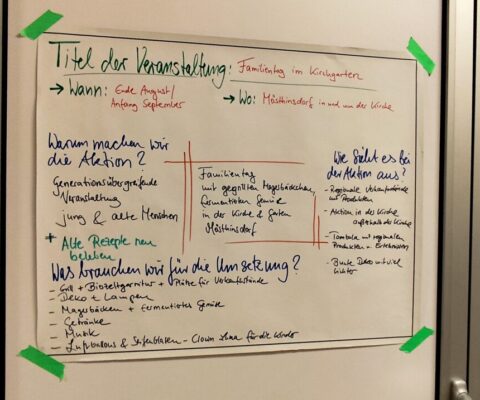 Titel der Veranstaltung: Familientag im Kirchgarten
→ Wann: Ende August/
Anfang September
→ Wo: Mösthinsdorf in und um der Kirche
Warum machen wir
die Aktion?
Generationsübergreifende
Veranstaltung
jung & alte Menschen
+ Alte Rezepte neu
beleben
Familientag
mit gegrillten Magerbädchen,
fermentierten Gemüse
in der Kirche & Garten
Mösthinsdorf
Wie sieht es bei
der Aktion aus?
- Regionale Verkaufsstände
mit Produkten
- Aktion in der Kirche
außerhalb der Kirche
- Tombola mit regionalen
Produkten u.
- Bunte Deko mit viel
Lichter
Was brauchen wir für die Umsetzung?
- Grill + Bierzeltgarnitur + Plätze für Verkaufsstände
- Deko + Lampen
- + fermentiertes Gemüse
- Getränke
- Musik
- Luftballons & Seifenblasen - Clown für die Kinder